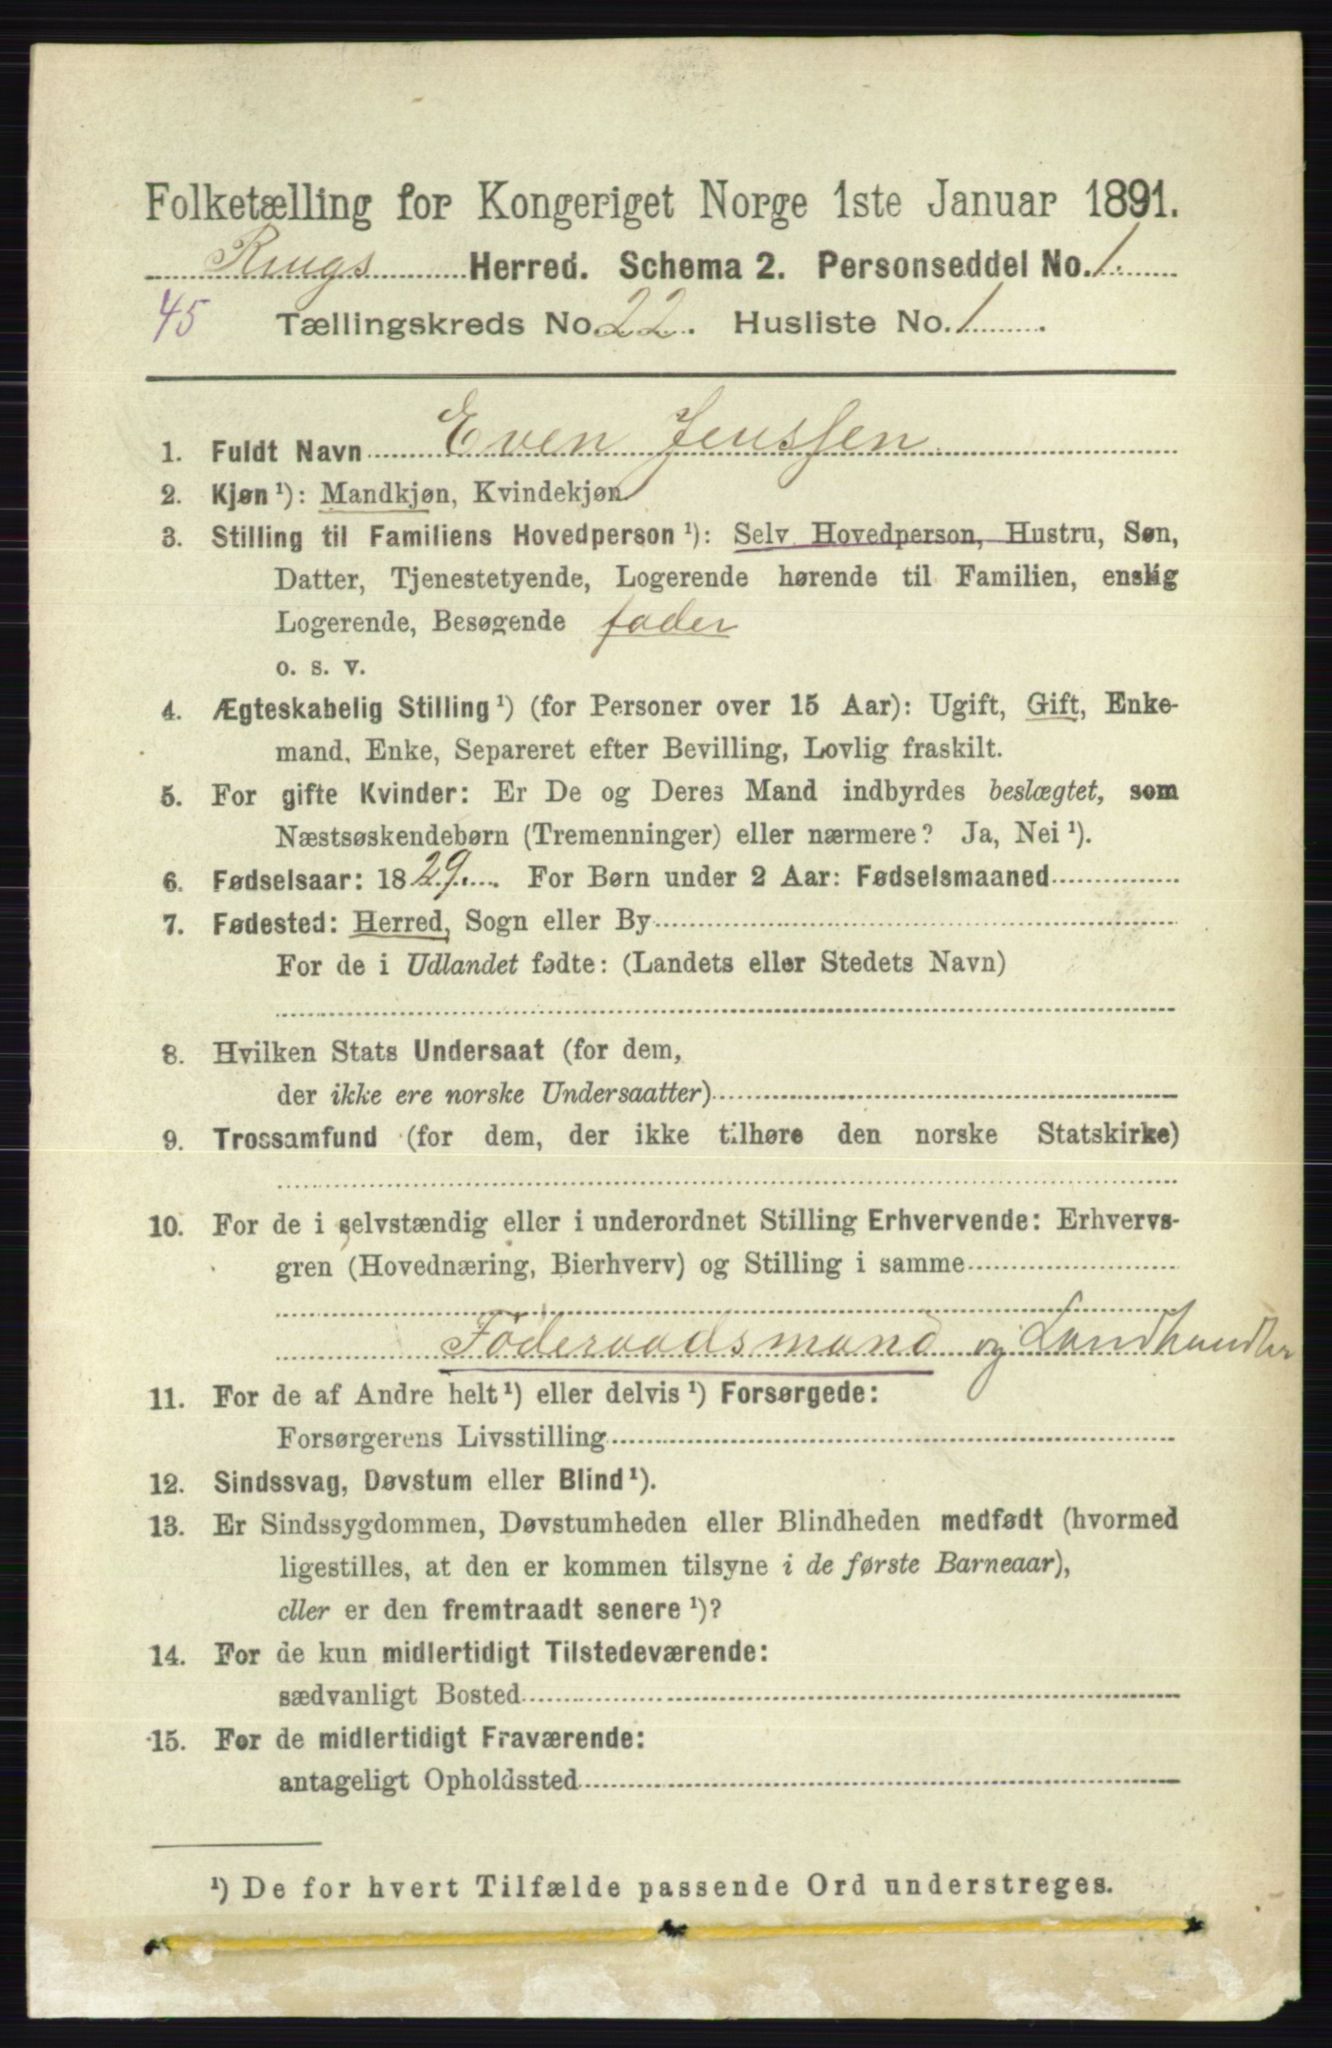 Folketælling for Kongeriget Norge 1ste Januar 1891.
Rings Herred. Schema 2. Personseddel No. 1.
45 Tællingskreds No. 22. Husliste No. 1.
1. Fuldt Navn Even Jenssen
2. Kjøn ¹): Mandkjøn, Kvindekjøn
3. Stilling til Familiens Hovedperson ¹): Selv Hovedperson, Hustru, Søn,
Datter, Tjenestetyende, Logerende hørende til Familien, enslig
Logerende, Besøgende fader
o. s. v.
4. Ægteskabelig Stilling ¹) (for Personer over 15 Aar): Ugift, Gift, Enke-
mand, Enke, Separeret efter Bevilling, Lovlig fraskilt.
5. For gifte Kvinder: Er De og Deres Mand indbyrdes beslægtet, som
Næstsøskendebørn (Tremenninger) eller nærmere? Ja, Nei ¹).
6. Fødselsaar: 1829. For Børn under 2 Aar: Fødselsmaaned
7. Fødested: Herred, Sogn eller By
For de i Udlandet fødte: (Landets eller Stedets Navn)
8. Hvilken Stats Undersaat (for dem,
der ikke ere norske Undersaatter)
9. Trossamfund (for dem, der ikke tilhøre den norske Statskirke)
10. For de i selvstændig eller i underordnet Stilling Erhvervende: Erhvervs-
gren (Hovednæring, Bierhverv) og Stilling i samme
Föderaadsmand og Landhandler
11. For de af Andre helt ¹) eller delvis ¹) Forsørgede:
Forsørgerens Livsstilling
12. Sindssvag, Døvstum eller Blind ¹).
13. Er Sindssygdommen, Døvstumheden eller Blindheden medfødt (hvormed
ligestilles, at den er kommen tilsyne i de første Barneaar),
eller er den fremtraadt senere ¹)?
14. For de kun midlertidigt Tilstedeværende:
sædvanligt Bosted
15. For de midlertidigt Fraværende:
antageligt Opholdssted
¹) De for hvert Tilfælde passende Ord understreges.